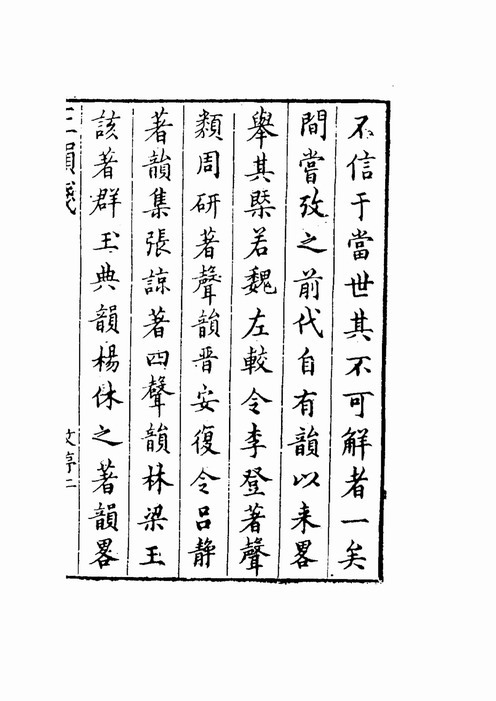 不信于當世其不可解者一矣
間嘗攷之前代自有韻以来畧
舉其槩若魏左較令李登著聲
類周研著聲韻晋安復令吕静
著韻集張諒著四聲韻林梁王
該著群玉典韻楊休之著韻畧